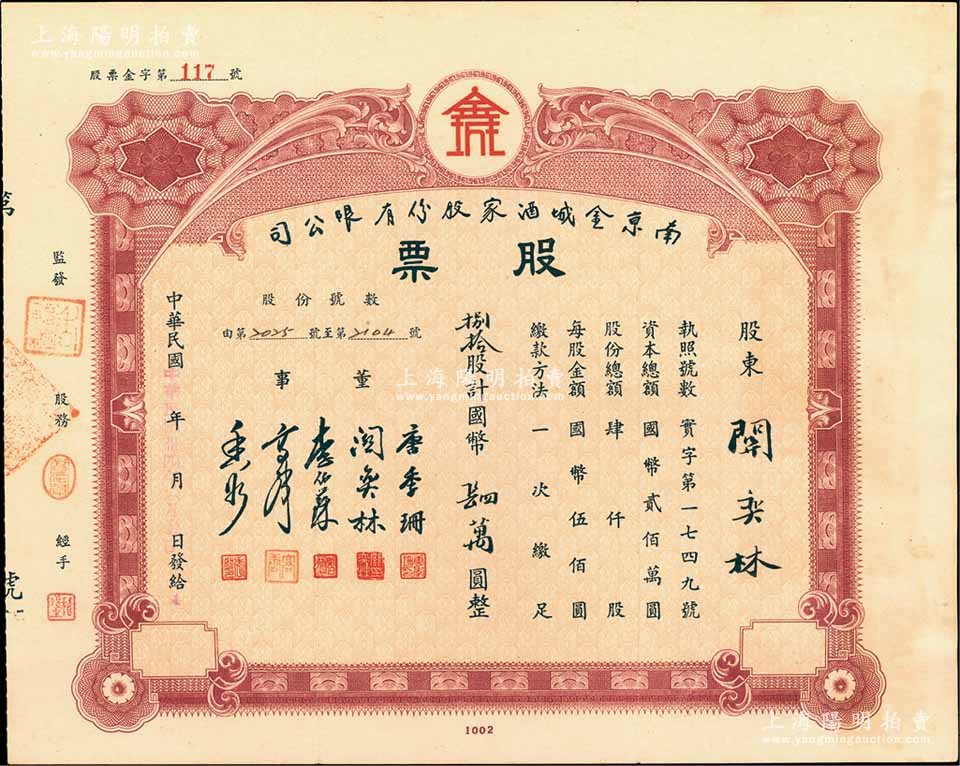 上海陽明拍賣
www.yangmingauction.com
股票金字第 117 號
南京金城酒家股份有限公司
股票
股東 關奕林
執照號數 實字第一七四九號
資本總額 國幣貳佰萬圓
股份總額 肆仟股
每股金額 國幣伍佰圓
繳款方法 一次繳足
捌拾股計國幣 肆萬圓整
股份號數
由第 2025 號至第 2104 號
董事
唐季珊
關奕林
中華民國 年 月 日發給
監發
股務
經手
號
上海陽明拍賣
www.yangmingauction.com
上海陽明拍賣
www.yangmingauction.com
1002